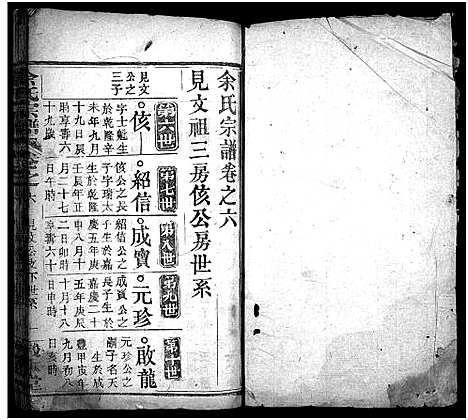 余氏宗譜卷之六
見文祖三房侅公房世系
見文
公之
三子
第六世
侅
字士魁生
於乾隆辛
未年九月
十九日辰
時享壽六
十九歲
第七世
紹信
侅公之長
子字瑞太
生於乾隆
壬辰年正
月二十七
日午時
第八世
成寶
紹信公之
長子生於
慶五年庚
申八月十
二日卯時
享壽六十
第九世
元珍
成寶公之
長子生於
嘉慶二十
五年庚辰
十月十八
日申時
第十世
啟龍
元珍公之
嗣子名天
生於咸
豐甲寅年
九月初八
日亥時
余氏宗譜
卷之六
見文公位下世系